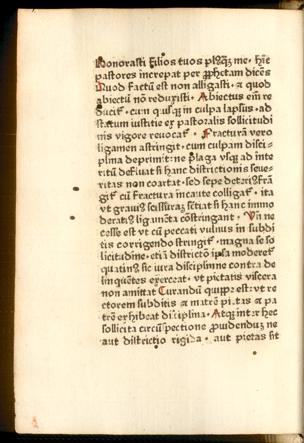 honorasti filios tuos plꝰq̃ me. hīc
pastores increpat per ꝓphetam dicēs
Quod factū est non alligasti. ⁊ quod
abiectū nō reduxisti. Abiectus em̄ re
ducit᷑ cum quisq̃ in culpa lapsus. ad
statum iusticie ex pastoralis sollicitudi
nis vigore reuocat᷑. Fracturam vero
ligamen astringit. cum culpam disci⸗
plina deprimit: ne plaga vsq̃ ad inte
ritū defluat si hanc districtionis seue⸗
ritas non coartat. sed sepe deteriꝰ frā
git᷑ cū fractura incaute colligat᷑. ita
vt grauiꝰ scissurā sentiat si hanc immo
deratiꝰ ligamēta cōstringant. Vn̄ ne
cesse est vt cū peccati vulnus in subdi
tis corrigendo stringit᷑. magna se so
licitudine. etiā districtō ipsa moderet᷑
quatinꝰ sic iura discipline contra de
linquētes exerceat. vt pietatis viscera
non amittat Curandū quippe est: vt re
ctorem subditis ⁊ matrē pietas ⁊ pa
trē exhibeat disciplina. Atq̃ inter hec
sollicita circūspectione ꝓuidenduȝ ne
aut districtio rigida. aut pietas sit